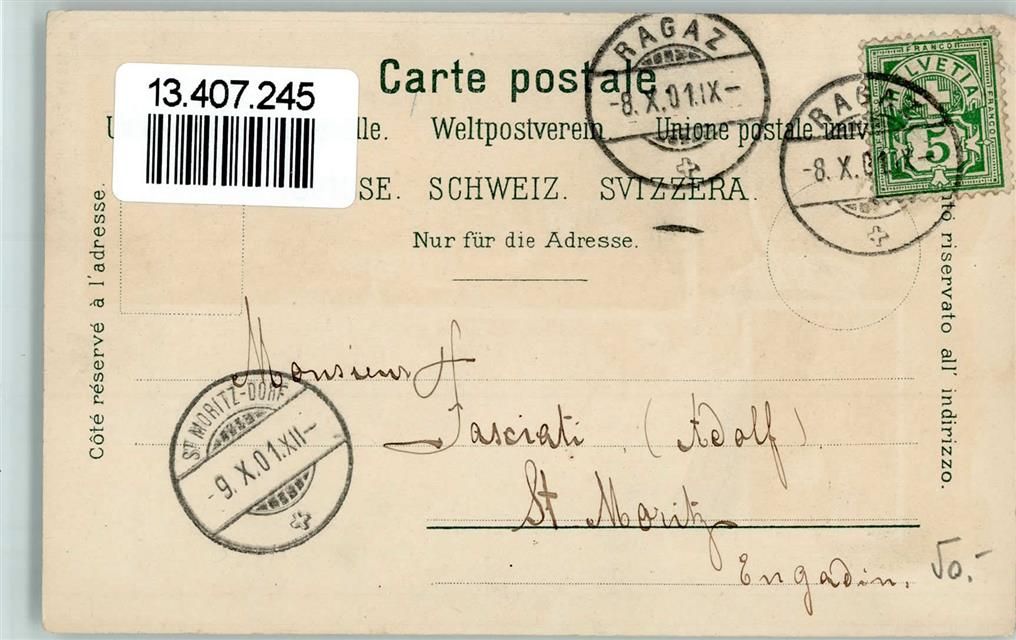 13.407.245
Carte postale
lle. Weltpostverein. Unione postale univ
SE. SCHWEIZ. SVIZZERA.
Nur für die Adresse.
RAGAZ
-8.X.01.IX-
RAGAZ
-8.X.01.IX-
FRANCO
HELVETIA
FRANCO
5
Côté réservé à l'adresse.
nto riservato all' indirizzo.
ST MORITZ-DORF
-9.X.01.XII-
Monsieur
Fasciati (Adolf).
St Moritz
Engadin.
50.-